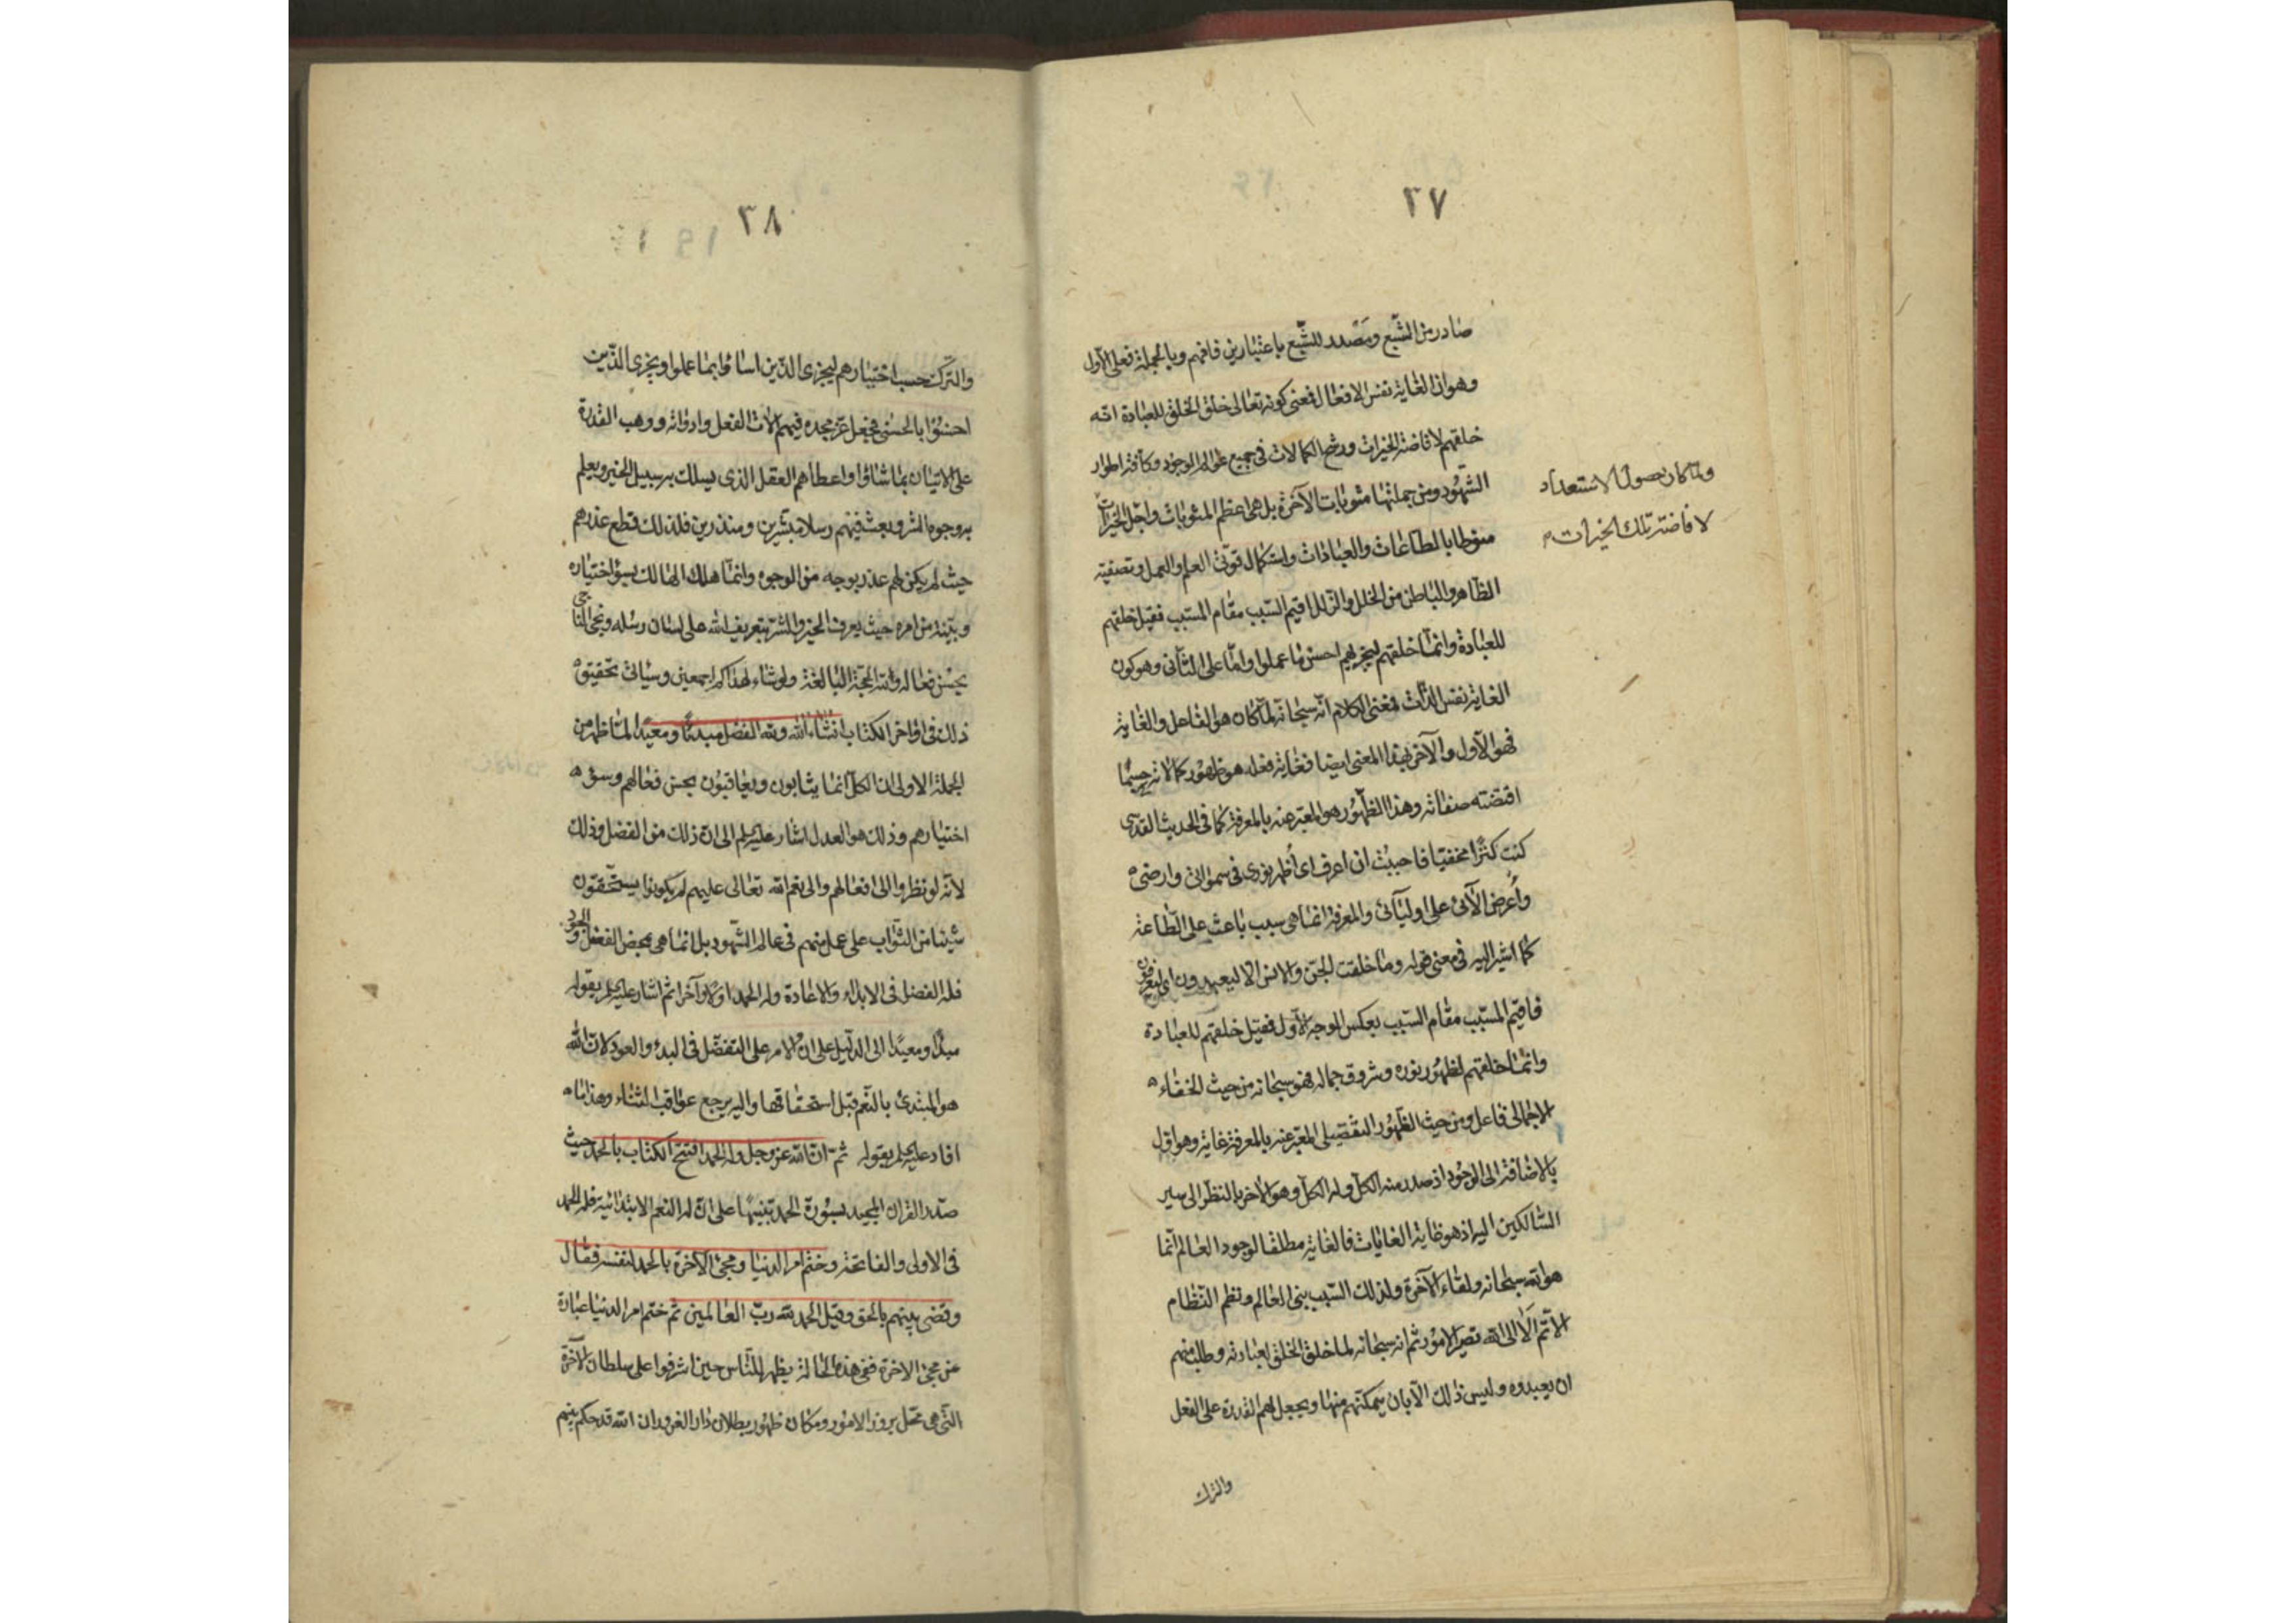 ٣٧
صادر من الشبع ومصدر للشبع باعتبارين فافهم وبالجملة فعلى الأول
وهو ان الغاية نفس الافعال فمعنى كونه تعالى خلق الخلق للعبادة انه
خلقهم لافاضة الخيرات ورشح الكمالات في جميع عوالم الوجود وكافة اطوار
الشهود ومن جملتها مثوبات الآخرة بل هي اعظم المثوبات واجل الخيرات
ولما كان حصول الاستعداد
لافاضة تلك الخيرات
منوطا بالطاعات والعبادات واستكمال قوتي العلم والعمل وتصفية
الظاهر والباطن من الخلل والزلل اقيم السبب مقام المسبب فقيل خلقهم
للعبادة وانما خلقهم ليجزيهم احسن ما عملوا واما على الثاني وهو كون
الغاية نفس الذات فمعنى الكلام انه سبحانه لما كان هو الفاعل والغاية
فهو الأول والآخر بهذا المعنى ايضا فغاية فعله هو ظهور كمالاته حسبما
اقتضته صفاته وهذا الظهور هو المعبر عنه بالمعرفة كما في الحديث القدسي
كنت كنزا مخفيا فاحببت ان اعرف اى أظهر نورى في سمواتى وارضى
وأعرض الآئى على اوليآئى والمعرفة انما هي سبب باعث على الطاعة
كما اشير اليه في معنى قوله وما خلقت الجن والانس الا ليعبدون اى ليعرفون
فاقيم المسبب مقام السبب بعكس الوجه الأول فقيل خلقهم للعبادة
وانما خلقهم لظهور نوره وشروق جماله فهو سبحانه من حيث الخفاء
الاجمالى فاعل ومن حيث الظهور التفصيلي المعبر عنه بالمعرفة غاية وهو اول
بالاضافة الى الوجود اذ صدر منه الكل وله الكل وهو الآخر بالنظر الى سير
السالكين اليه اذ هو غاية الغايات فالغاية مطلقا لوجود العالم انما
هو الله سبحانه ولقاء الآخرة ولذلك السبب بنى العالم ونظم النظام
الأتم ألا الى الله تصير الامور ثم انه سبحانه لما خلق الخلق لعبادته وطلب منهم
ان يعبدوه وليس ذلك الا بان يمكنهم منها ويجعل لهم القدرة على الفعل
والترك
٣٨
والترك حسب اختيارهم ليجزى الذين اساؤا بما عملوا ويجزى الذين
احسنوا بالحسنى فجعل عز مجده فيهم الات الفعل وادواته ووهب القدرة
على الاتيان بما شاؤا واعطاهم العقل الذى يسلك به سبيل الخير ويعلم
به وجوه الشر وبعث فيهم رسلا مبشرين ومنذرين فلذلك قطع عذرهم
حيث لم يكن لهم عذر بوجه من الوجوه وانما هلك الهالك بسوء اختياره
وبينة من امره حيث يعرف الخير والشر بتعريف الله على لسان رسله ونجى الناجى
بحسن فعاله ولله الحجة البالغة ولو شاء لهداكم اجمعين وسياتى تحقيق
ذلك في اواخر الكتاب انشاء الله ولله الفضل مبدئا ومعيدا لما ظهر من
الجملة الاولى ان الكل انما يثابون ويعاقبون بحسن فعالهم وسوء
اختيارهم وذلك هو العدل اشار عليه السلم الى ان ذلك من الفضل وذلك
لأنه لو نظروا الى افعالهم والى نعم الله تعالى عليهم لم يكونوا يستحقون
شيئا من الثواب على عمل منهم في عالم الشهود بل انما هي بمحض الفضل والجود
فله الفضل في الابداء والاعادة وله الحمد اولا وآخرا ثم اشار عليه السلم بقوله
مبدئا ومعيدا الى الدليل على ان الامر على التفضل في البدء والعود لان الله
هو المبتدئ بالنعم قبل استحقاقها واليه يرجع عواقب الثناء وهذا ما
افاد عليه السلم بقوله ثم ان الله عز وجل وله الحمد افتتح الكتاب بالحمد حيث
صدر القرآن المجيد بسورة الحمد تنبيها على ان له النعم الابتدائية فله الحمد
في الاولى والفاتحة وختم امر الدنيا ومجئ الآخرة بالحمد لنفسه فقال
وقضى بينهم بالحق وقيل الحمد لله رب العالمين ثم ختم امر الدنيا عبارة
عن مجئ الآخرة ففي هذه الحالة يظهر للناس حين اشرفوا على سلطان الآخرة
التي هي محل بروز الامور ومكان ظهور بطلان دار الغرور ان الله قد حكم بينهم